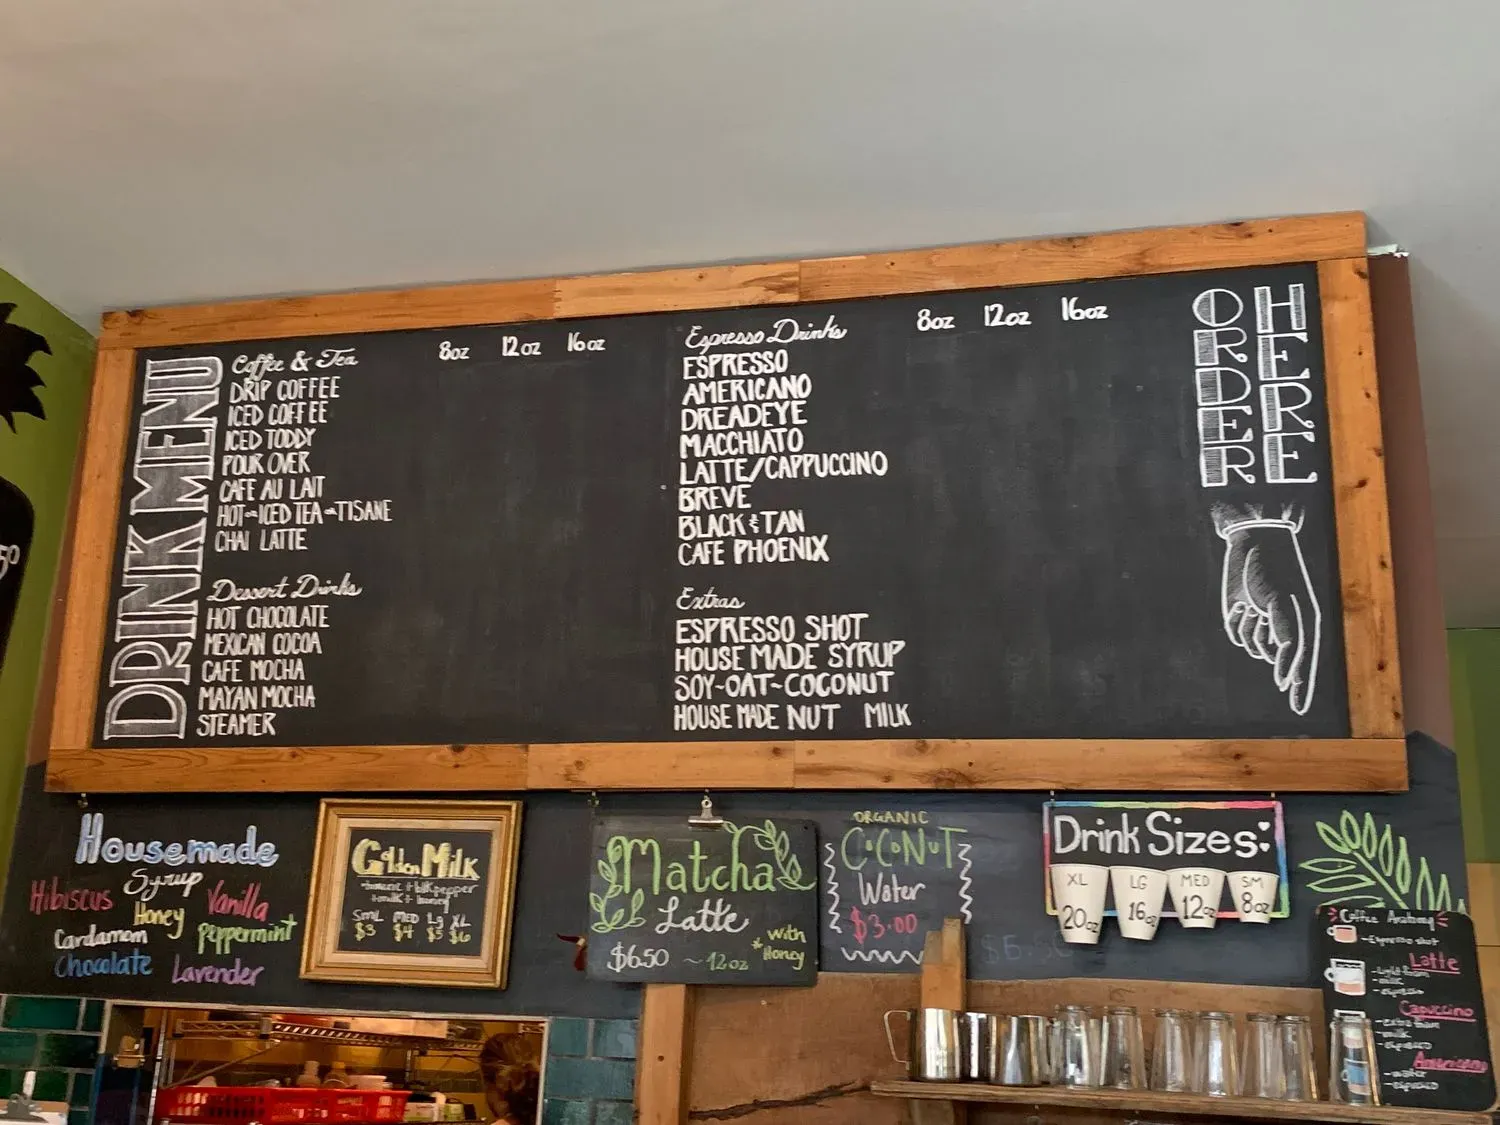 DRINK MENU
Coffee & Tea 8oz 12oz 16oz
DRIP COFFEE
ICED COFFEE
ICED TODDY
POUR OVER
CAFE AU LAIT
HOT-OR-ICED TEA-OR-TISANE
CHAI LATTE
Dessert Drinks
HOT CHOCOLATE
MEXICAN COCOA
CAFE MOCHA
MAYAN MOCHA
STEAMER
Espresso Drinks 8oz 12oz 16oz
ESPRESSO
AMERICANO
DREADEYE
MACCHIATO
LATTE/CAPPUCCINO
BREVE
BLACK & TAN
CAFE PHOENIX
Extras
ESPRESSO SHOT
HOUSE MADE SYRUP
SOY-OAT-COCONUT
HOUSE MADE NUT MILK
ORDER HERE
Housemade
Syrup
Hibiscus
Honey
Vanilla
Cardamom
Peppermint
Chocolate
Lavender
Golden Milk
tumeric + blk pepper
+ milk + honey
Sml Med Lg XL
$3 $4 $5 $6
Matcha
Latte
$6.50 ~12oz
* with Honey
ORGANIC
COCONUT
Water
$3.00
$6.50
Drink Sizes:
XL LG MED SM
20oz 16oz 12oz 8oz
Coffee Anatomy
- Espresso shot
Latte
- Light foam
- milk
- espresso
Capuccino
- extra foam
- milk
- espresso
Americano
- water
- espresso
50